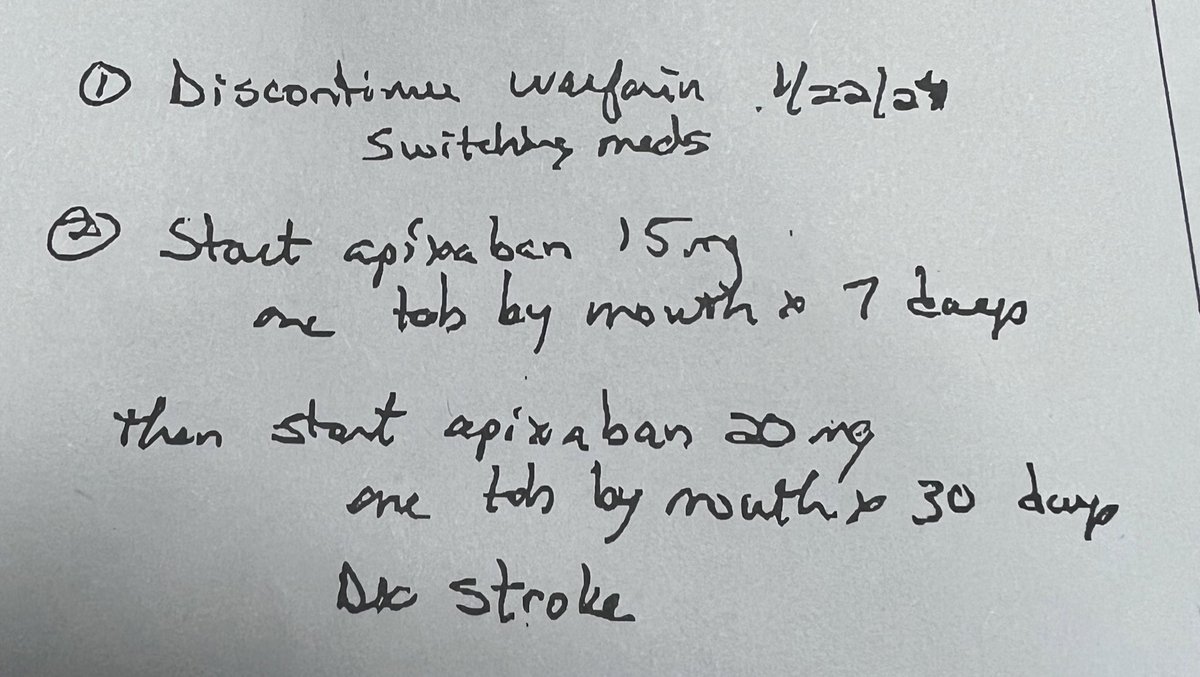 ① Discontinue warfarin 1/22/24
switching meds
② Start apixaban 15 mg
one tab by mouth x 7 days
then start apixaban 20 mg
one tab by mouth x 30 days
Dx stroke